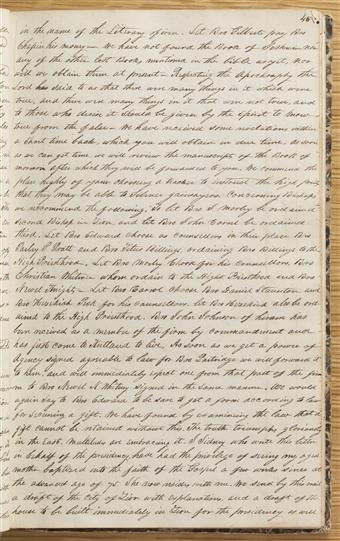 46
in the name of the Literary firm. Let Bro Gilbert pay Bro
Chapin his money— We have not found the Book of Jasher nor
any of the other lost Books mentioned in the bible as yet, nor
will we obtain them at present— Respecting the Apochraphy the
Lord has said to us that there were many things in it which were
true, and there were many things in it that were not true, and
to those who desire it should be given by the Spirit to know
true from the false— We have received some revelations within
a short time back, which you will obtain in due time. As soon
as we can get time, we will review the manuscripts of the Book of
mormon after which they will be forwarded to you. We commend the
plan highly of your choosing a teacher to instruct the high priests
that they may be able to silence gainsayers. Concerning Bishops
we recommend the following as let Bro Is Morley be ordained
second Bishop in Zion, and let Bro John Corril be ordained
third. Let Bro Edward choose as counsellors in their place Bro
Parley P Pratt and Bro Titus Billings, ordaining Bro Billings to the
High Priesthood. Let Bro Morley choose for his counsellors, Bro
Christian Whitmer whom ordain to the High Priesthood and Bro
Newel Knight— Let Bro Carrol choose Bro Daniel Stanton and
Bro Hezekiah Peck for his counsellors, let Bro Hezekiah also be or
dained to the High Priesthood. Bro John Johnson of hiram has
been received as a member of the firm by commandment and
has just come to Kirtland to live. As soon as we get a power of
Agency signed agreeable to law for Bro Patridge we will forward it
to him, and will immediately expect one from that part of the firm
to Bro Newel K Whitney signed in the same manner. We would
again say to Bro Edward to be sure to get a form according to law
for securing a gift. We have found by examining the law that a
gift cannot be retained without this. The truth triumphs gloriously
in the East. Multitudes are embracing it. I Sidney who write this letter
in behalf of the presidency, have had the privilege of seeing my aged
mother baptized into the faith of the Gospel a few weeks since at
the advanced age of 75 She now resides with me. We send by this mail
a draft of the City of Zion with explanation, and a draft of the
house to be built immediately in Zion for the presidency as well